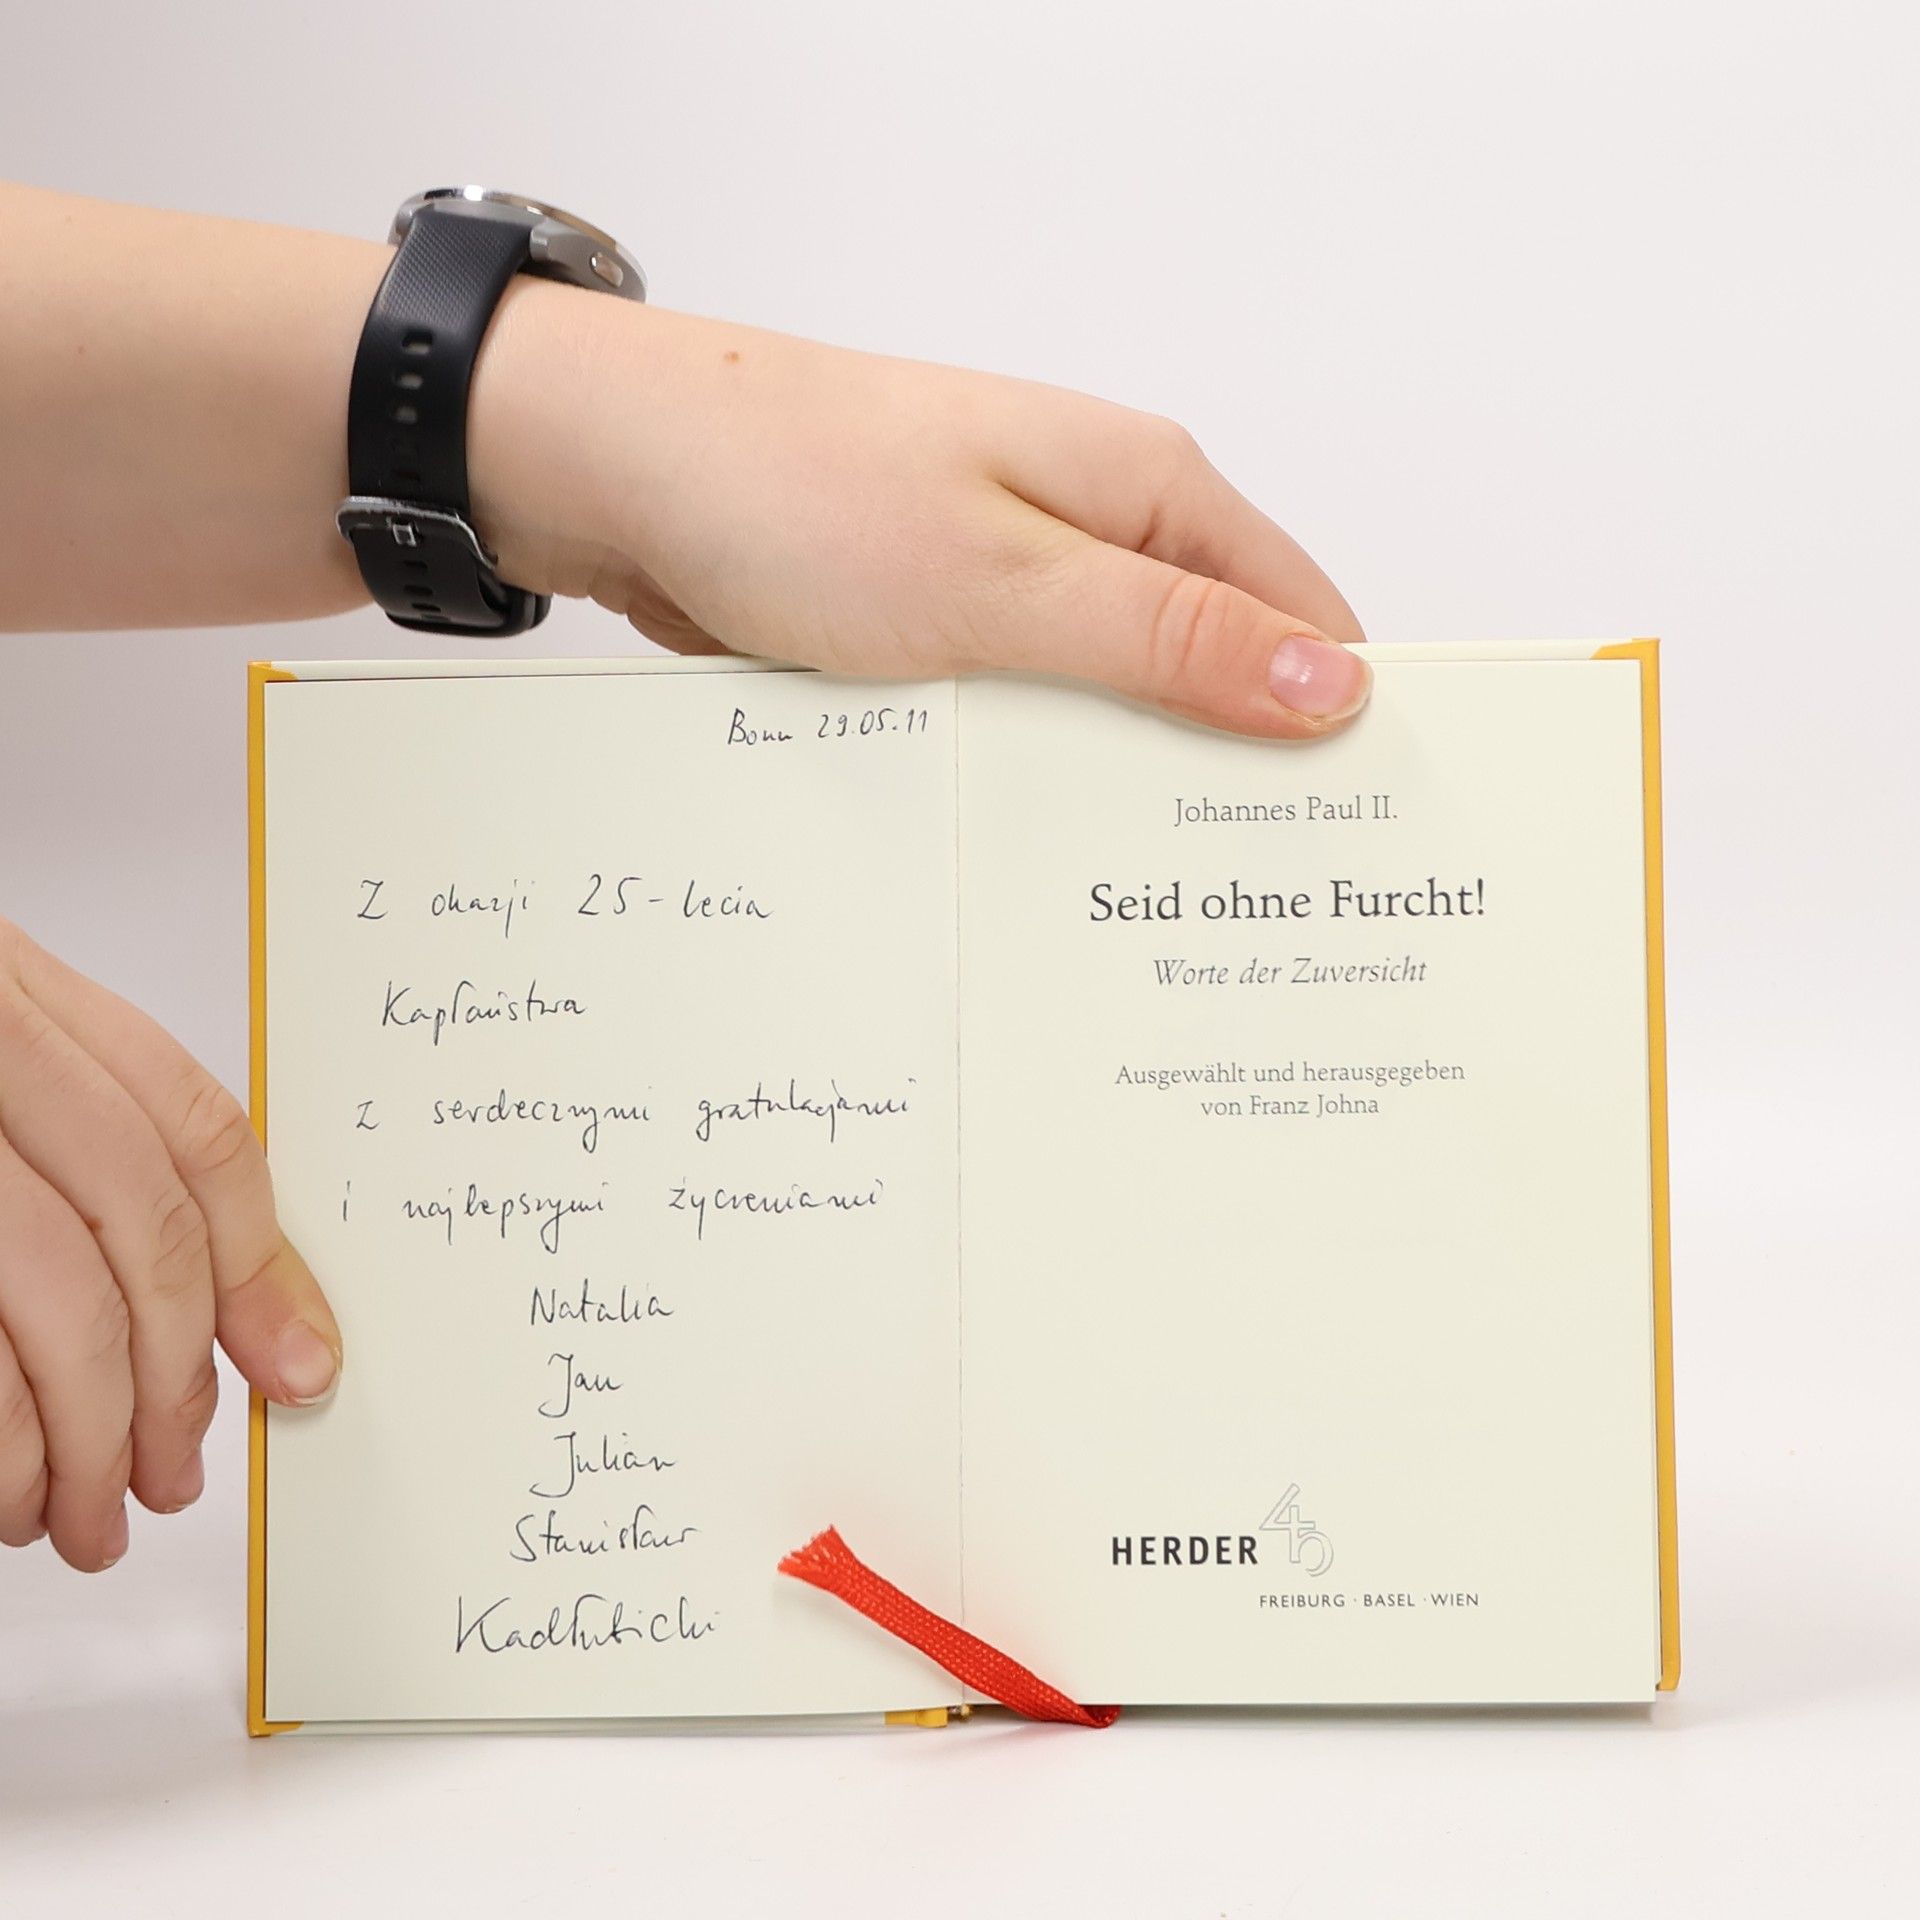 Bonn 29.05.11
Z okazji 25-lecia
Kapłaństwa
z serdecznymi gratulacjami
i najlepszymi życzeniami
Natalia
Jan
Julian
Stanisław
Kadłubicki
Johannes Paul II.
Seid ohne Furcht!
Worte der Zuversicht
Ausgewählt und herausgegeben
von Franz Johna
HERDER
FREIBURG · BASEL · WIEN